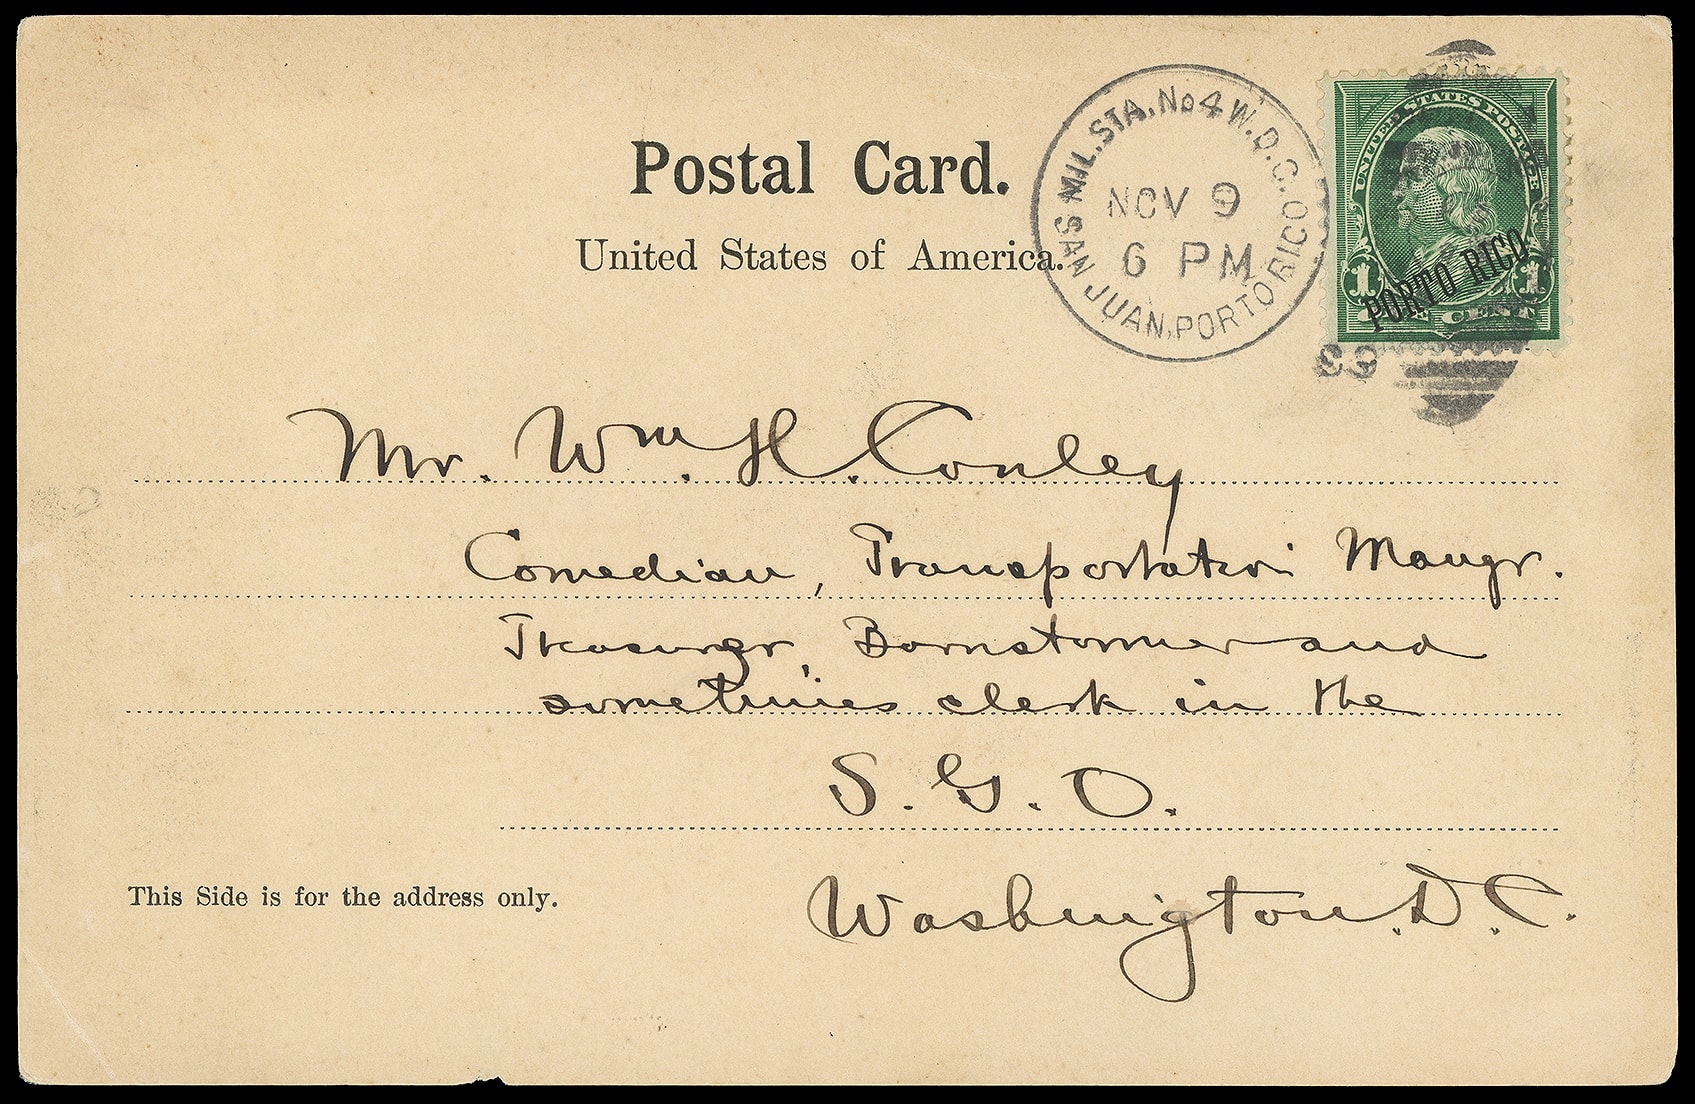 Postal Card.
United States of America.
MIL. STA. No 4 W.D.C.CO.
NOV 9
6 PM
SAN JUAN, PORTO RICO
99
UNITED STATES POSTAGE
PORTO RICO
1 CENT 1
Mr. Wm. H. Conley
Comedian, Transportation Mangr.
Treasurer, Barnstormer and
sometimes clerk in the
S. G. O.
Washington. D. C.
This Side is for the address only.